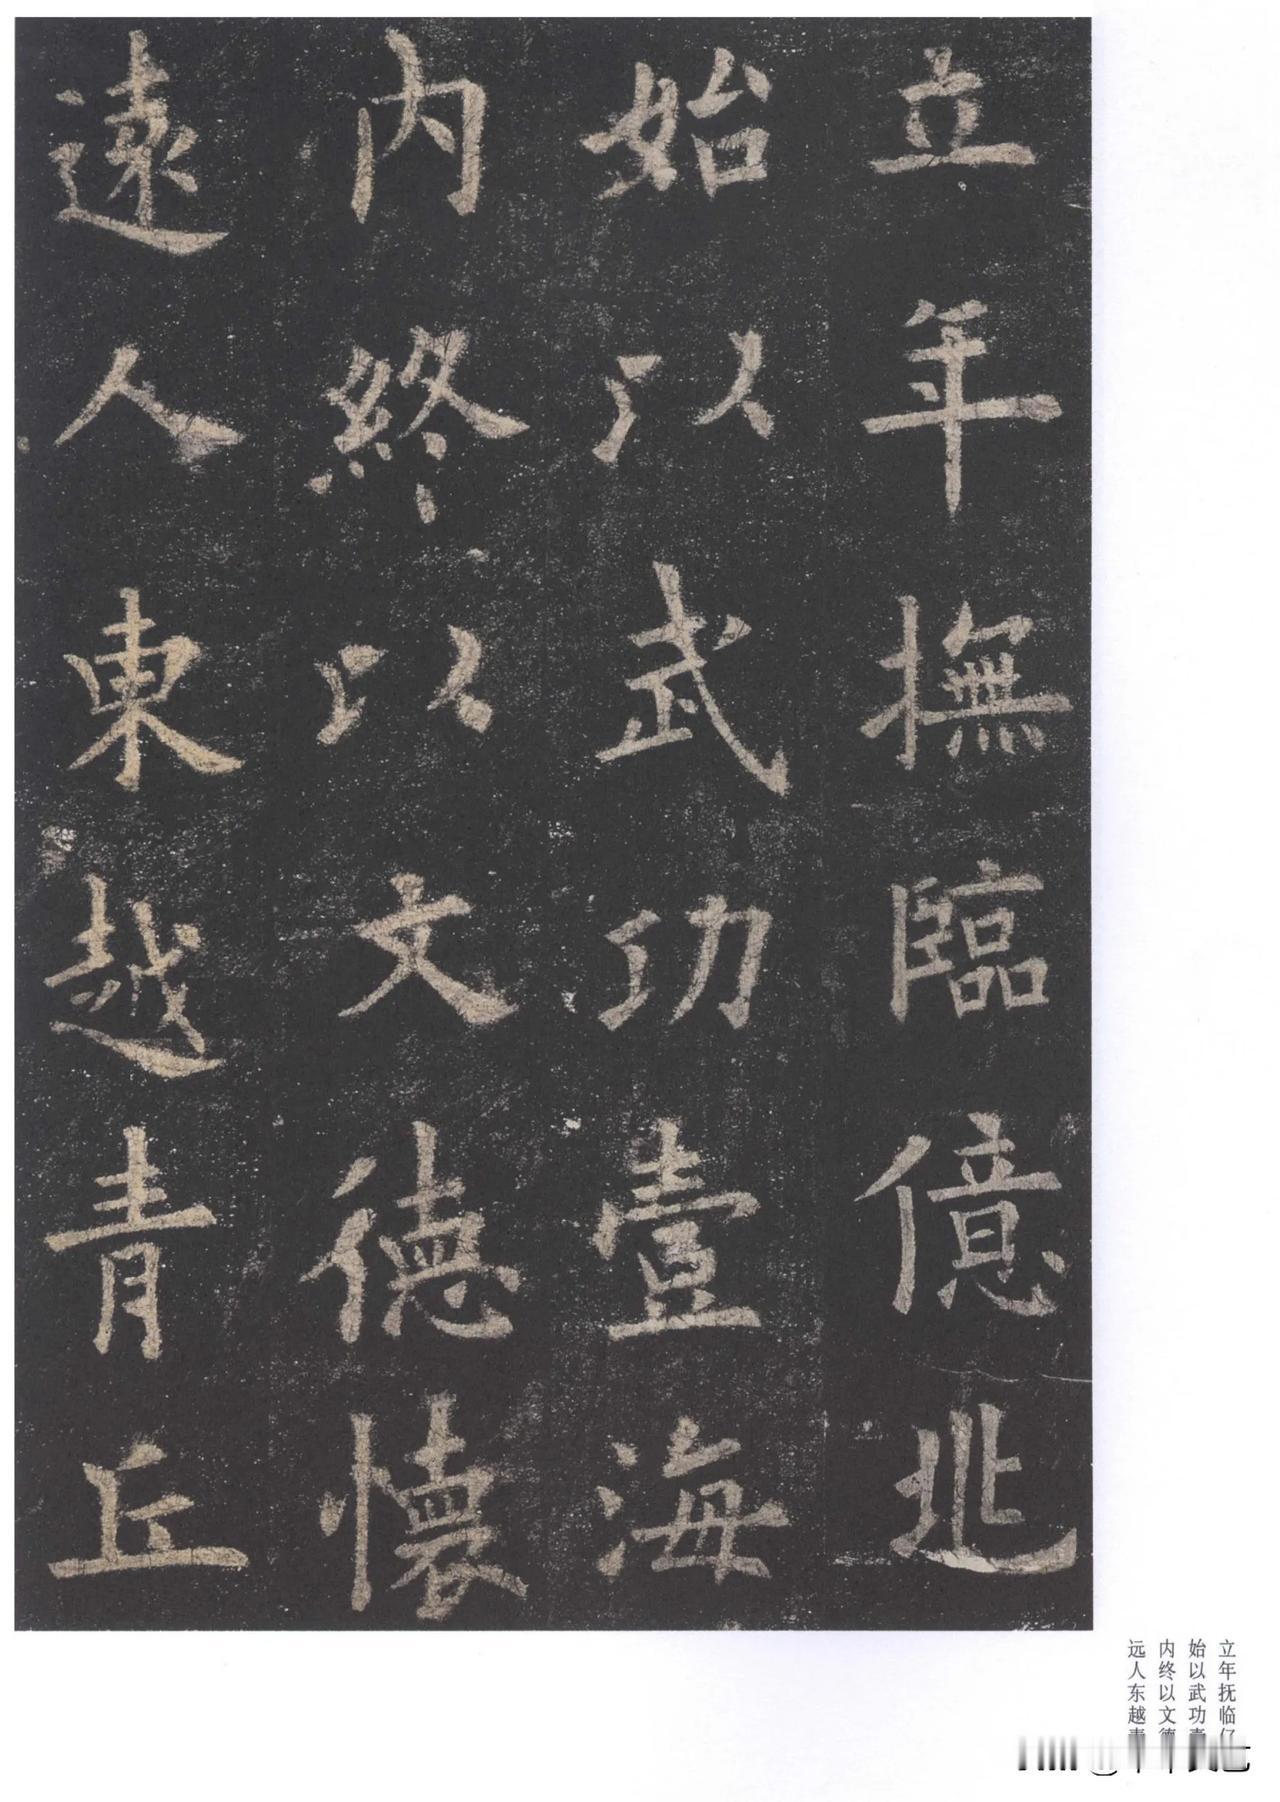 立年撫臨億兆
始以武功壹海
内終以文德懷
遠人東越青丘
立年抚临亿
始以武功壹
内终以文德
远人东越青